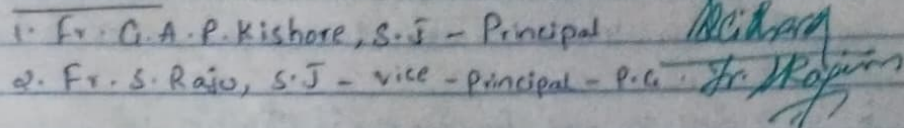 1. Fr. G.A.P. Kishore, S.J - Principal
2. Fr. S. Raju, S.J - vice - principal - P.G.